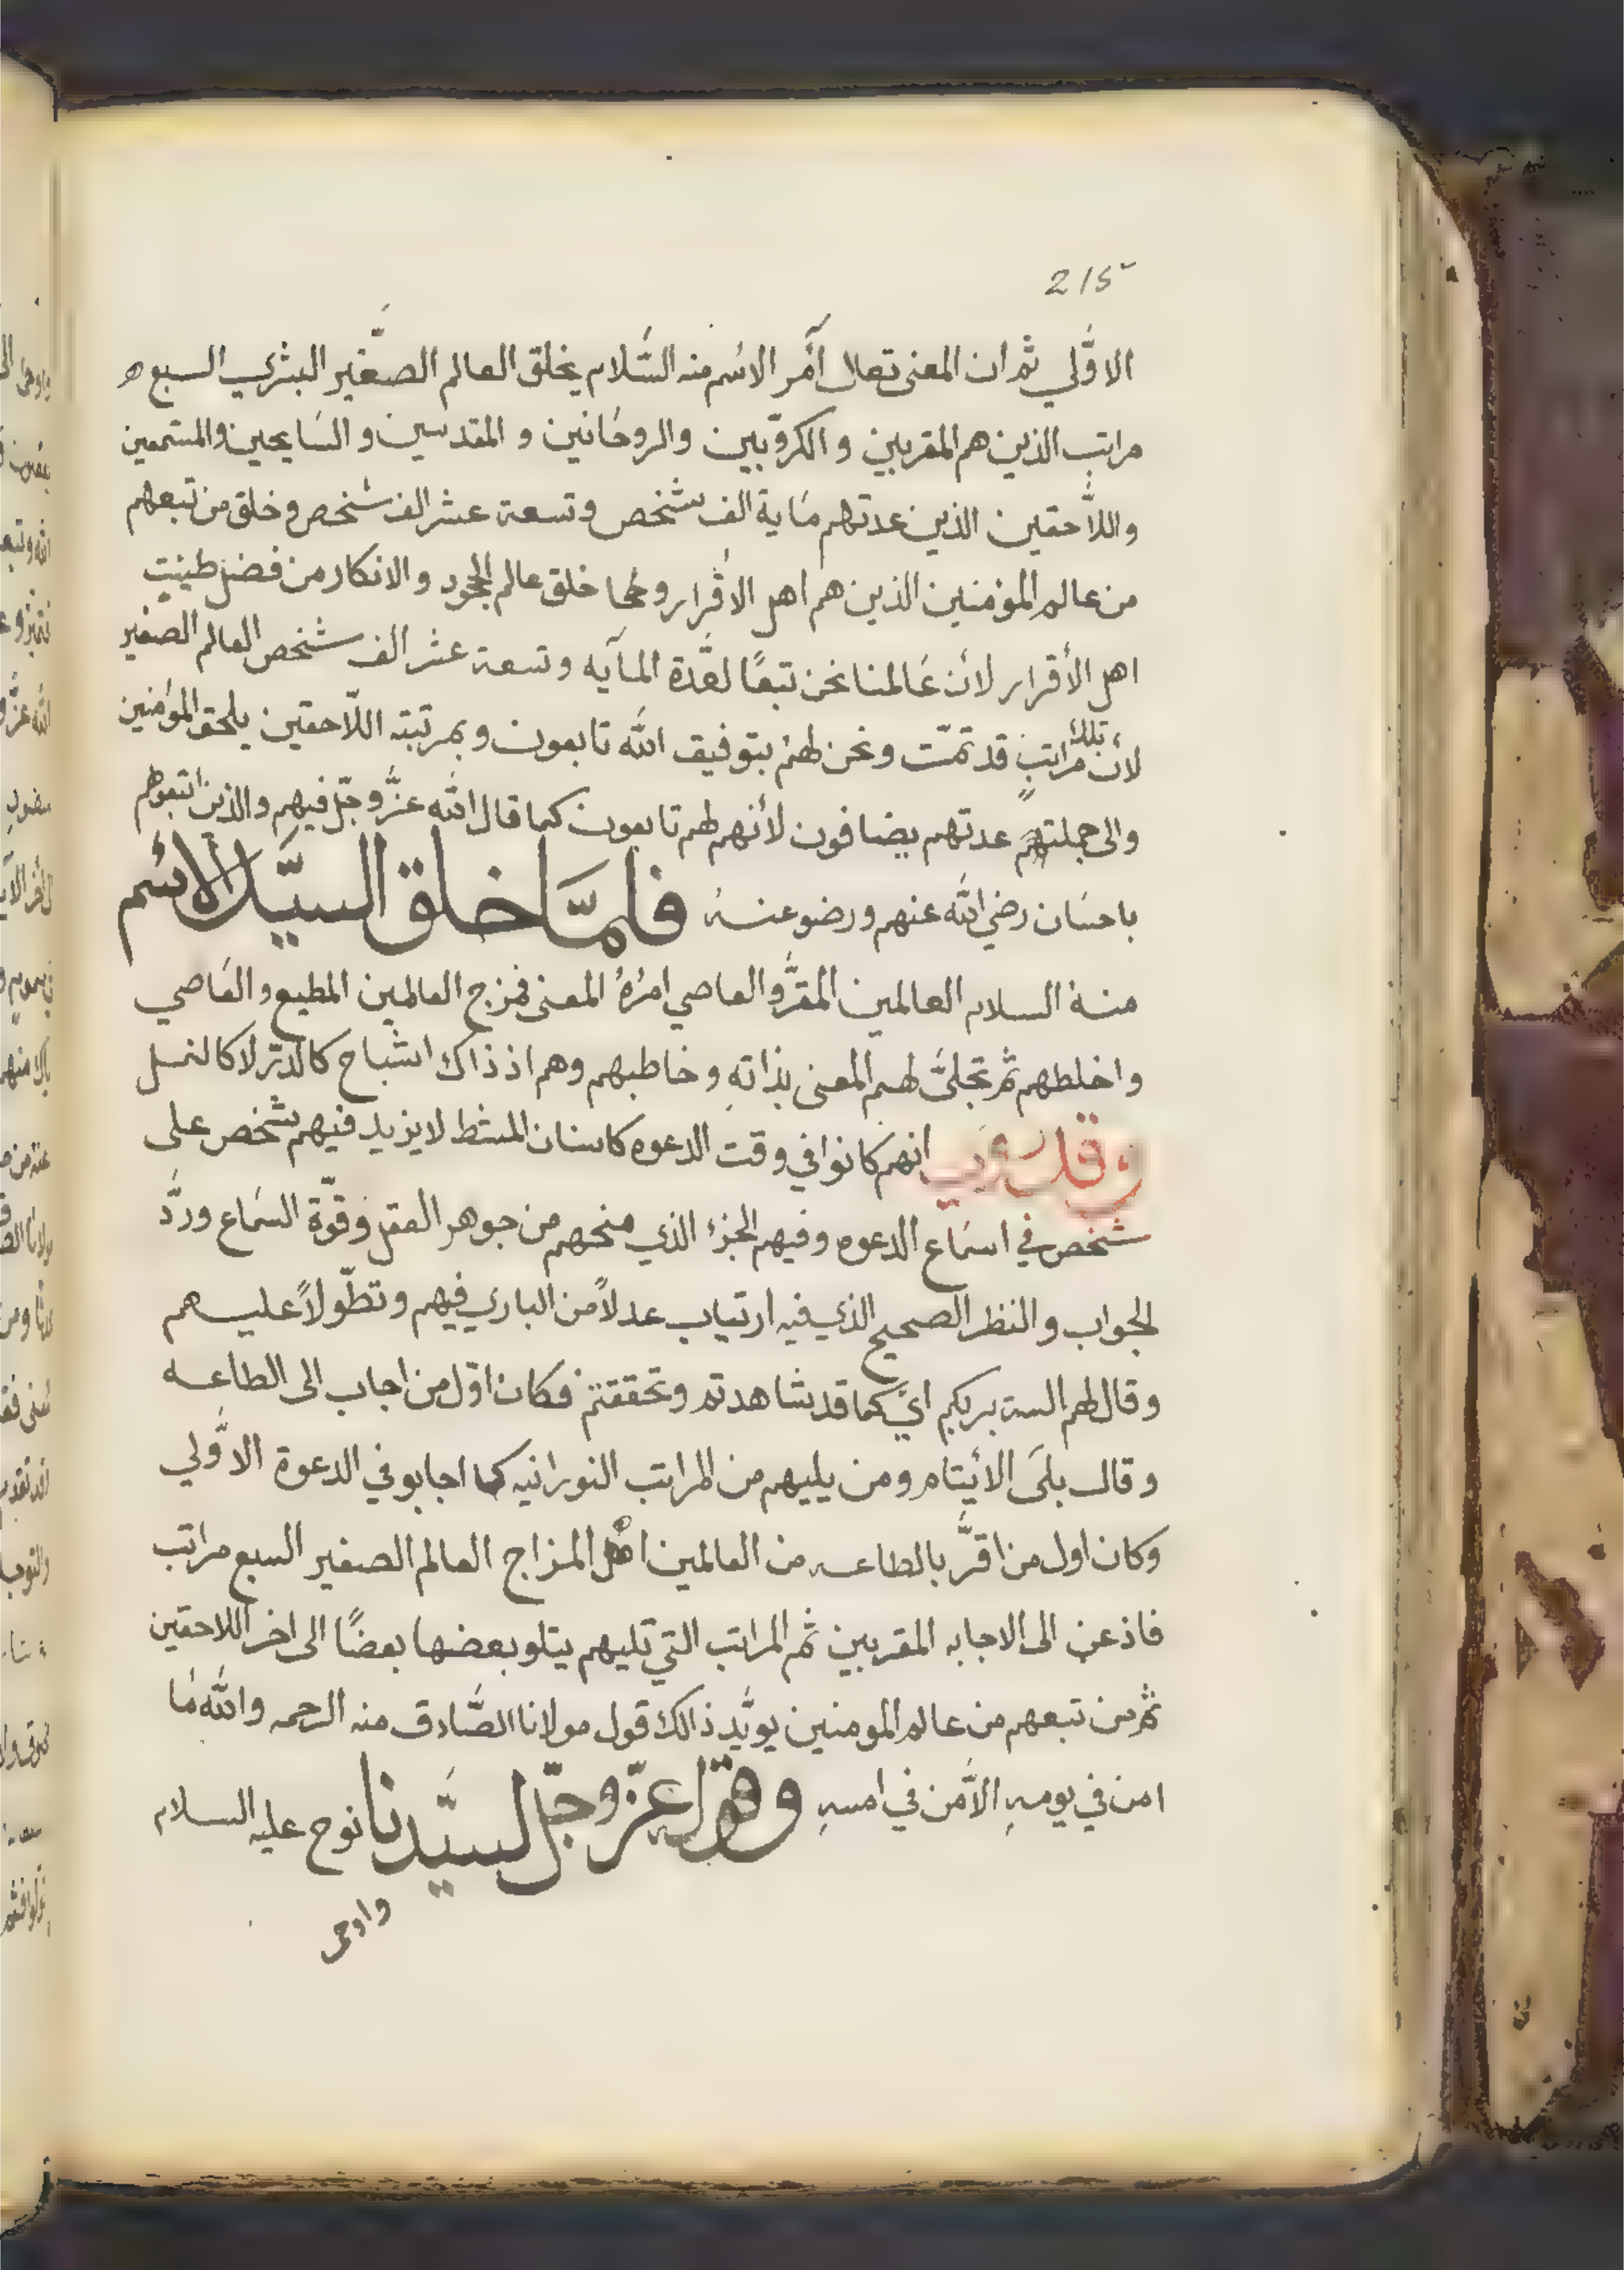 215
الاوّلي ثم ان المعنى تعالى آمر الاسم منه السّلام بخلق العالم الصغير البشري السبع
مراتب الذين هم المقربين و الكروّبيين والروحانين و المقدسين و السايحين والمستمعين
واللاّحقين الذين عدتهم ماية الف شخص وتسعة عشر الف شخص وخلق من تبعهم
من عالم المؤمنين الذين هم اهل الاقرار و خلق عالم الجحود والانكار من فضل طينت
اهل الأقرار لأن عَالمنا نحن تبعًا لعّدة المآيه وتسعة عشر الف شخص العالم الصّغير
لأن تلك مراتبٍ قد تمّت ونحن لهم بتوفيق الله تابعون وبمرتبة اللّاحقين يلحق المؤمنين
والى جملتهم عدتهم يضافون لأنهم لهم تابعون كما قال الله عزّ وجّل فيهم والذين اتبعوهم
باحسَان رضي الله عنهم ورضو عنه فلمَّا خلق السيّد الاسم
منهُ السلام العالمين المقرّ والعاصي امرهُ المعنى فمزج العالمين المطيع والعَاصي
واخلطهم ثم تجلىَّ لهم المعنى بذاتهِ وخاطبهم وهم اذ ذاك اشباح كالدّر لا كالنسل
وقد روي انهم كانوا في وقت الدعوه كاسنان المشط لا يزيد فيهم شخص على
شخص في اسمَاع الدعوه وفيهم الجزء الذي منحهم من جوهر العقل وقوّة السمَاع وردَّ
الجواب والنظر الصحيح الذي فيه ارتياب عدلاً من الباري فيهم وتطّولاً عليهم
وقال لهم الست بربكم ايَ كما قد شاهدتم وتحققتم فكان اوّل من اجاب الى الطاعه
وقال بلىَ الأيتام ومن يليهم من المراتب النورانيه كما اجابو في الدعوة الاوّلي
وكان اول من اقرَّ بالطاعه من العالمين اهل المزاج العالم الصغير السبع مراتب
فاذعن الى الاجابه المقربين ثم المراتب التي تليهم يتلو بعضها بعضًا الى اخر اللاحقين
ثم من تبعهم من عالم المومنين يويّد ذالك قول مولانا الصَّادق منه الرحمه والله مَا
امن في يومهِ الاَّ من في امسهِ وقوله عزّ وجلّ لسيّدنا نوح عليه السلام
واوحى